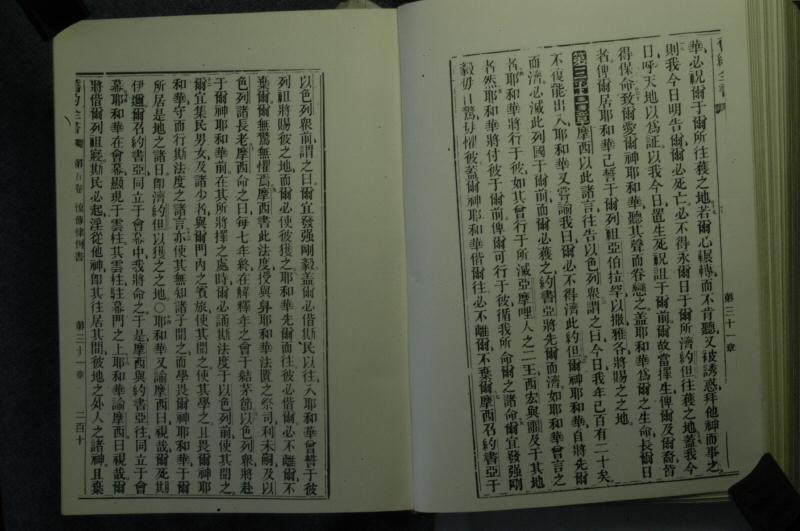 舊約全書
第三十一章
華必祝爾于爾所往獲之地若爾心輾轉而不肯聽又被誘惑拜他神而事之
則我今日明告爾爾必死亡必不得永爾日于爾所濟約但往獲之地蓋我今
日呼天地以為証以我今日置生死祝詛于爾前爾故當擇生俾爾及爾裔皆
得保命致爾愛爾神耶和華聽其聲而眷戀之蓋耶和華為爾之生命長爾日
者俾爾居耶和華己誓于爾列祖亞伯拉罕以撒雅各將賜之之地
第三十一章摩西以此諸言往告以色列衆謂之曰今日我年己百有二十矣
不復能出入耶和華又嘗諭我曰爾必不得濟此約但爾神耶和華自將先爾
而濟必滅此列國于爾前而爾必獲之約書亞將先爾而濟如耶和華曾言之
耶和華將行于彼如其曾行于所滅亞摩哩人之二王西宏與及于其地
者然耶和華將付彼于爾前俾爾可行于彼循我所命爾之諸命爾宜發强剛
毅毋日驚毋懼彼蓋爾神耶和華偕爾往必不離爾不棄爾摩西召約書亞于
以色列衆前謂之曰爾宜發强剛毅蓋爾必偕斯民以往入耶和華曾誓于彼
列祖將賜彼之地而爾必使彼獲之耶和華先爾而往彼必偕爾必不離爾不
棄爾爾無驚無懼焉摩西書此法度授與舁耶和華法匱之祭司利未嗣及以
色列諸長老摩西命之曰每七年終在解釋年之會于結茅節以色列衆將赴
于爾神耶和華前在其所將擇之處時爾必誦斯法度于以色列前使其聞之
爾宜集民男女及諸少者與爾門內之賓旅使其聞之使其學之且畏爾神耶
和華守而行斯法度之諸言亦使其無知諸子聞之而學畏爾神耶和華于爾
所居是地之諸日即濟約但以獲之之地○耶和華又諭摩西曰視哉爾死期
伊邇爾召約書亞同立于會幕中我將命之于是摩西與約書亞往同立于會
幕耶和華在會幕顯現于雲柱其雲柱駐幕門之上耶和華諭摩西曰視哉爾
將偕爾列祖寢斯民必起淫從他神即其往居其間彼地之外人之諸神且棄
舊約全書
第五卷
復傳律例書
第三十一章
二百十